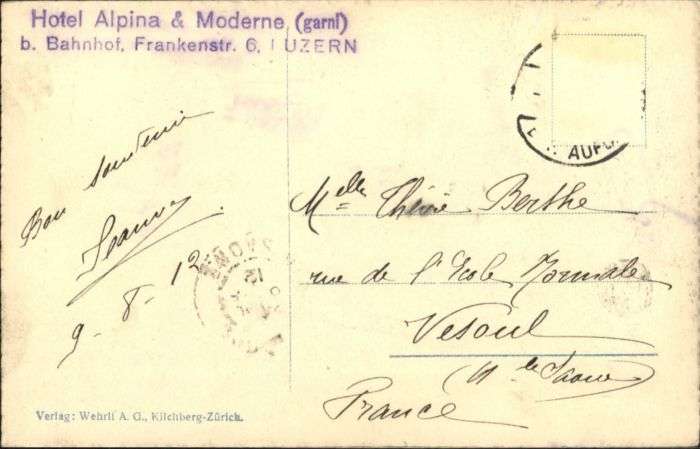 Hotel Alpina & Moderne (garni)
b. Bahnhof, Frankenstr. 6, LUZERN
AUFG
Bon souvenir
Jeanne
9-8-12
Melle Berthe
rue de l'Ecole Normale
Vesoul
(Hte Saone)
France
Verlag: Wehrli A. G., Kilchberg-Zürich.